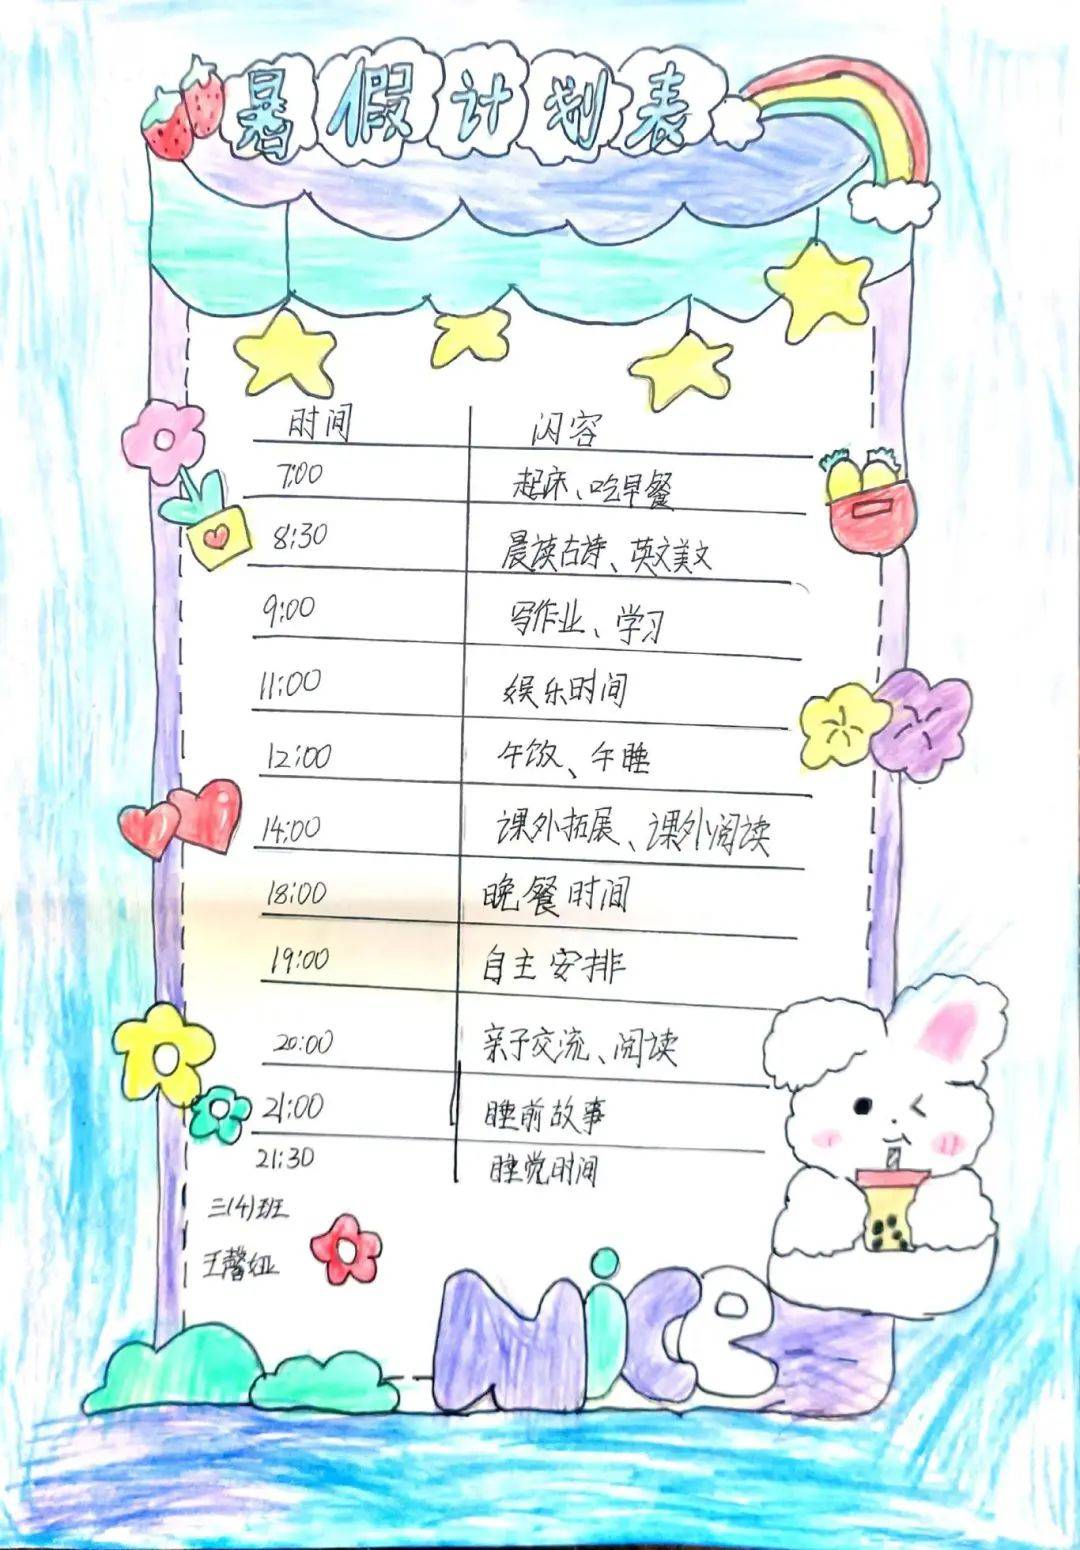 暑假计划表
时间 闪容
7:00 起床、吃早餐
8:30 晨读古诗、英文美文
9:00 写作业、学习
11:00 娱乐时间
12:00 午饭、午睡
14:00 课外拓展、课外阅读
18:00 晚餐时间
19:00 自主安排
20:00 亲子交流、阅读
21:00 睡前故事
21:30 睡觉时间
三(4)班
王馨娅
Nice